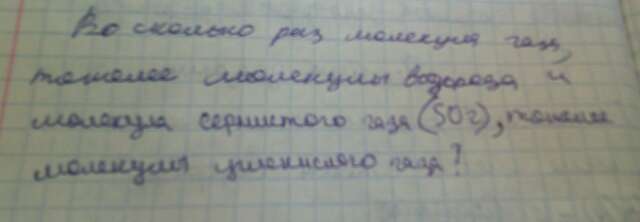 Во сколько раз молекула газа,
тяжелее молекулы водорода и
молекула сернистого газа (SO2), тяжелее
молекулы углекислого газа?